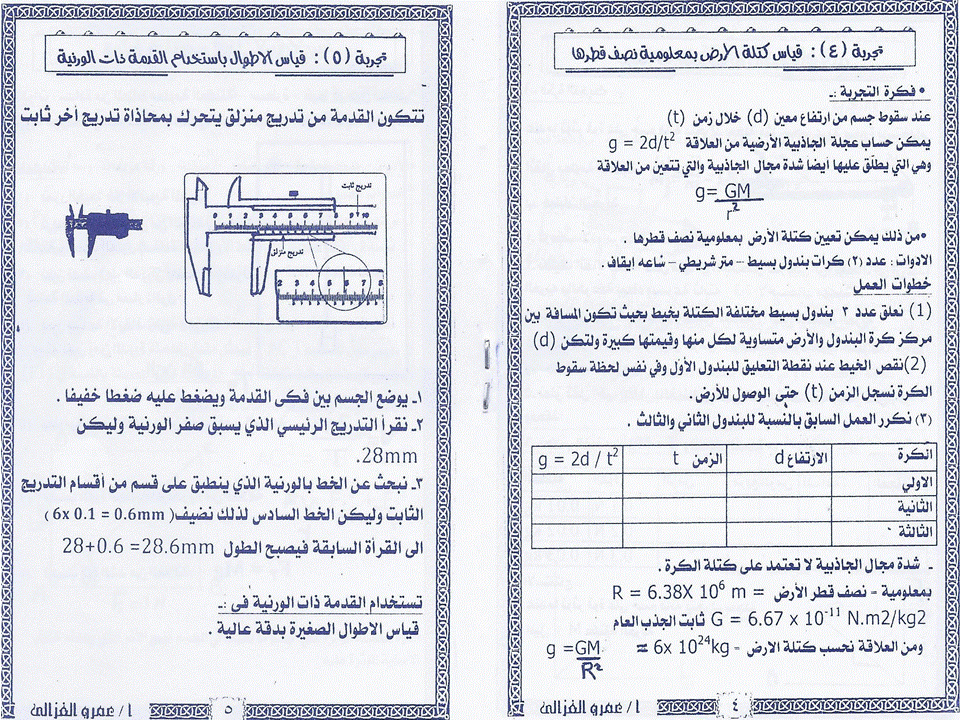 تجربة (٤): قياس كتلة الأرض بمعلومية نصف قطرها
• فكرة التجربة :ـ
عند سقوط جسم من ارتفاع معين (d) خلال زمن (t)
يمكن حساب عجلة الجاذبية الأرضية من العلاقة g = 2d/t²
وهي التي يطلق عليها أيضا شدة مجال الجاذبية والتي تتعين من العلاقة
g= GM
r²
•من ذلك يمكن تعيين كتلة الأرض بمعلومية نصف قطرها .
الادوات : عدد (٢) كرات بندول بسيط – متر شريطي – ساعة إيقاف .
خطوات العمل
(1) نعلق عدد ٣ بندول بسيط مختلفة الكتلة بخيط بحيث تكون المسافة بين
مركز كرة البندول والأرض متساوية لكل منها وقيمتها كبيرة ولتكن (d)
(2)نقص الخيط عند نقطة التعليق للبندول الأول وفي نفس لحظة سقوط
الكرة نسجل الزمن (t) حتى الوصول للأرض .
(٣) نكرر العمل السابق بالنسبة للبندول الثاني والثالث .
الكرة الارتفاع d الزمن t g = 2d / t²
الاولي
الثانية
الثالثة
ـ شدة مجال الجاذبية لا تعتمد على كتلة الكرة .
بمعلومية – نصف قطر الأرض = R = 6.38X 10⁶ m
G = 6.67 x 10⁻¹¹ N.m2/kg2 ثابت الجذب العام
ومن العلاقة نحسب كتلة الارض – ≈ 6x 10²⁴kg g =GM
R²
٤
ا / عمرو الغزالى
تجربة (٥): قياس الاطوال باستخدام القدمة ذات الورنية
تتكون القدمة من تدريج منزلق يتحرك بمحاذاة تدريج آخر ثابت
تدريج ثابت
0 1 2 3 4 5 6 7 8 9 10
تدريج منزلق
2 3 4 5 6 7 8
١ـ يوضع الجسم بين فكى القدمة ويضغط عليه ضغطا خفيفا .
٢ـ نقرأ التدريج الرئيسي الذي يسبق صفر الورنية وليكن
28mm.
٣ـ نبحث عن الخط بالورنية الذي ينطبق على قسم من أقسام التدريج
الثابت وليكن الخط السادس لذلك نضيف( 6x 0.1 = 0.6mm)
الى القرأة السابقة فيصبح الطول 28+0.6 =28.6mm
تستخدام القدمة ذات الورنية فى :ـ
قياس الاطوال الصغيرة بدقة عالية .
٥
ا / عمرو الغزالى